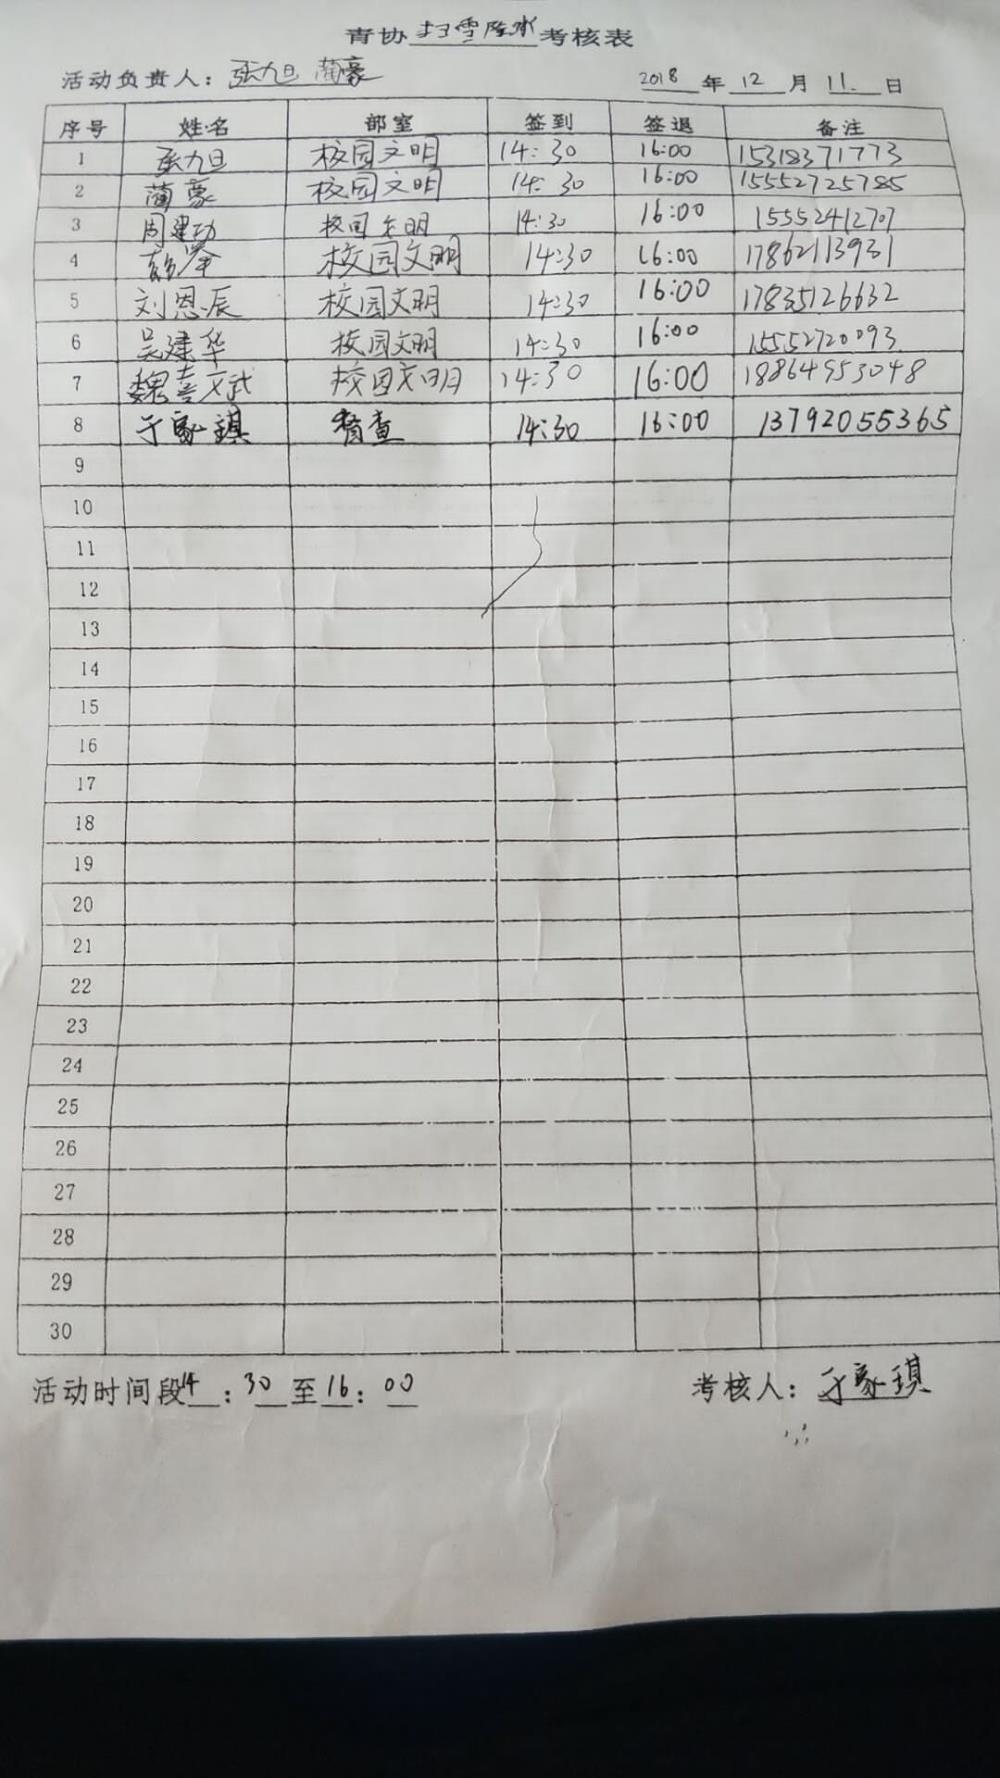 青协 扫雪除冰 考核表
活动负责人：张九旦 蔺豪 2018 年 12 月 11 日
序号 姓名 部室 签到 签退 备注
1 张九旦 校园文明 14:30 16:00 15318371773
2 蔺豪 校园文明 14:30 16:00 15552725785
3 周建功 校园文明 14:30 16:00 15552412707
4 校园文明 14:30 16:00 17862113931
5 刘恩辰 校园文明 14:30 16:00 17835126632
6 吴建华 校园文明 14:30 16:00 15552720093
7 魏 校园文明 14:30 16:00 18864953048
8 于家琪 督查 14:30 16:00 13792055365
9
10
11
12
13
14
15
16
17
18
19
20
21
22
23
24
25
26
27
28
29
30
活动时间段14：30至16：00 考核人：于家琪